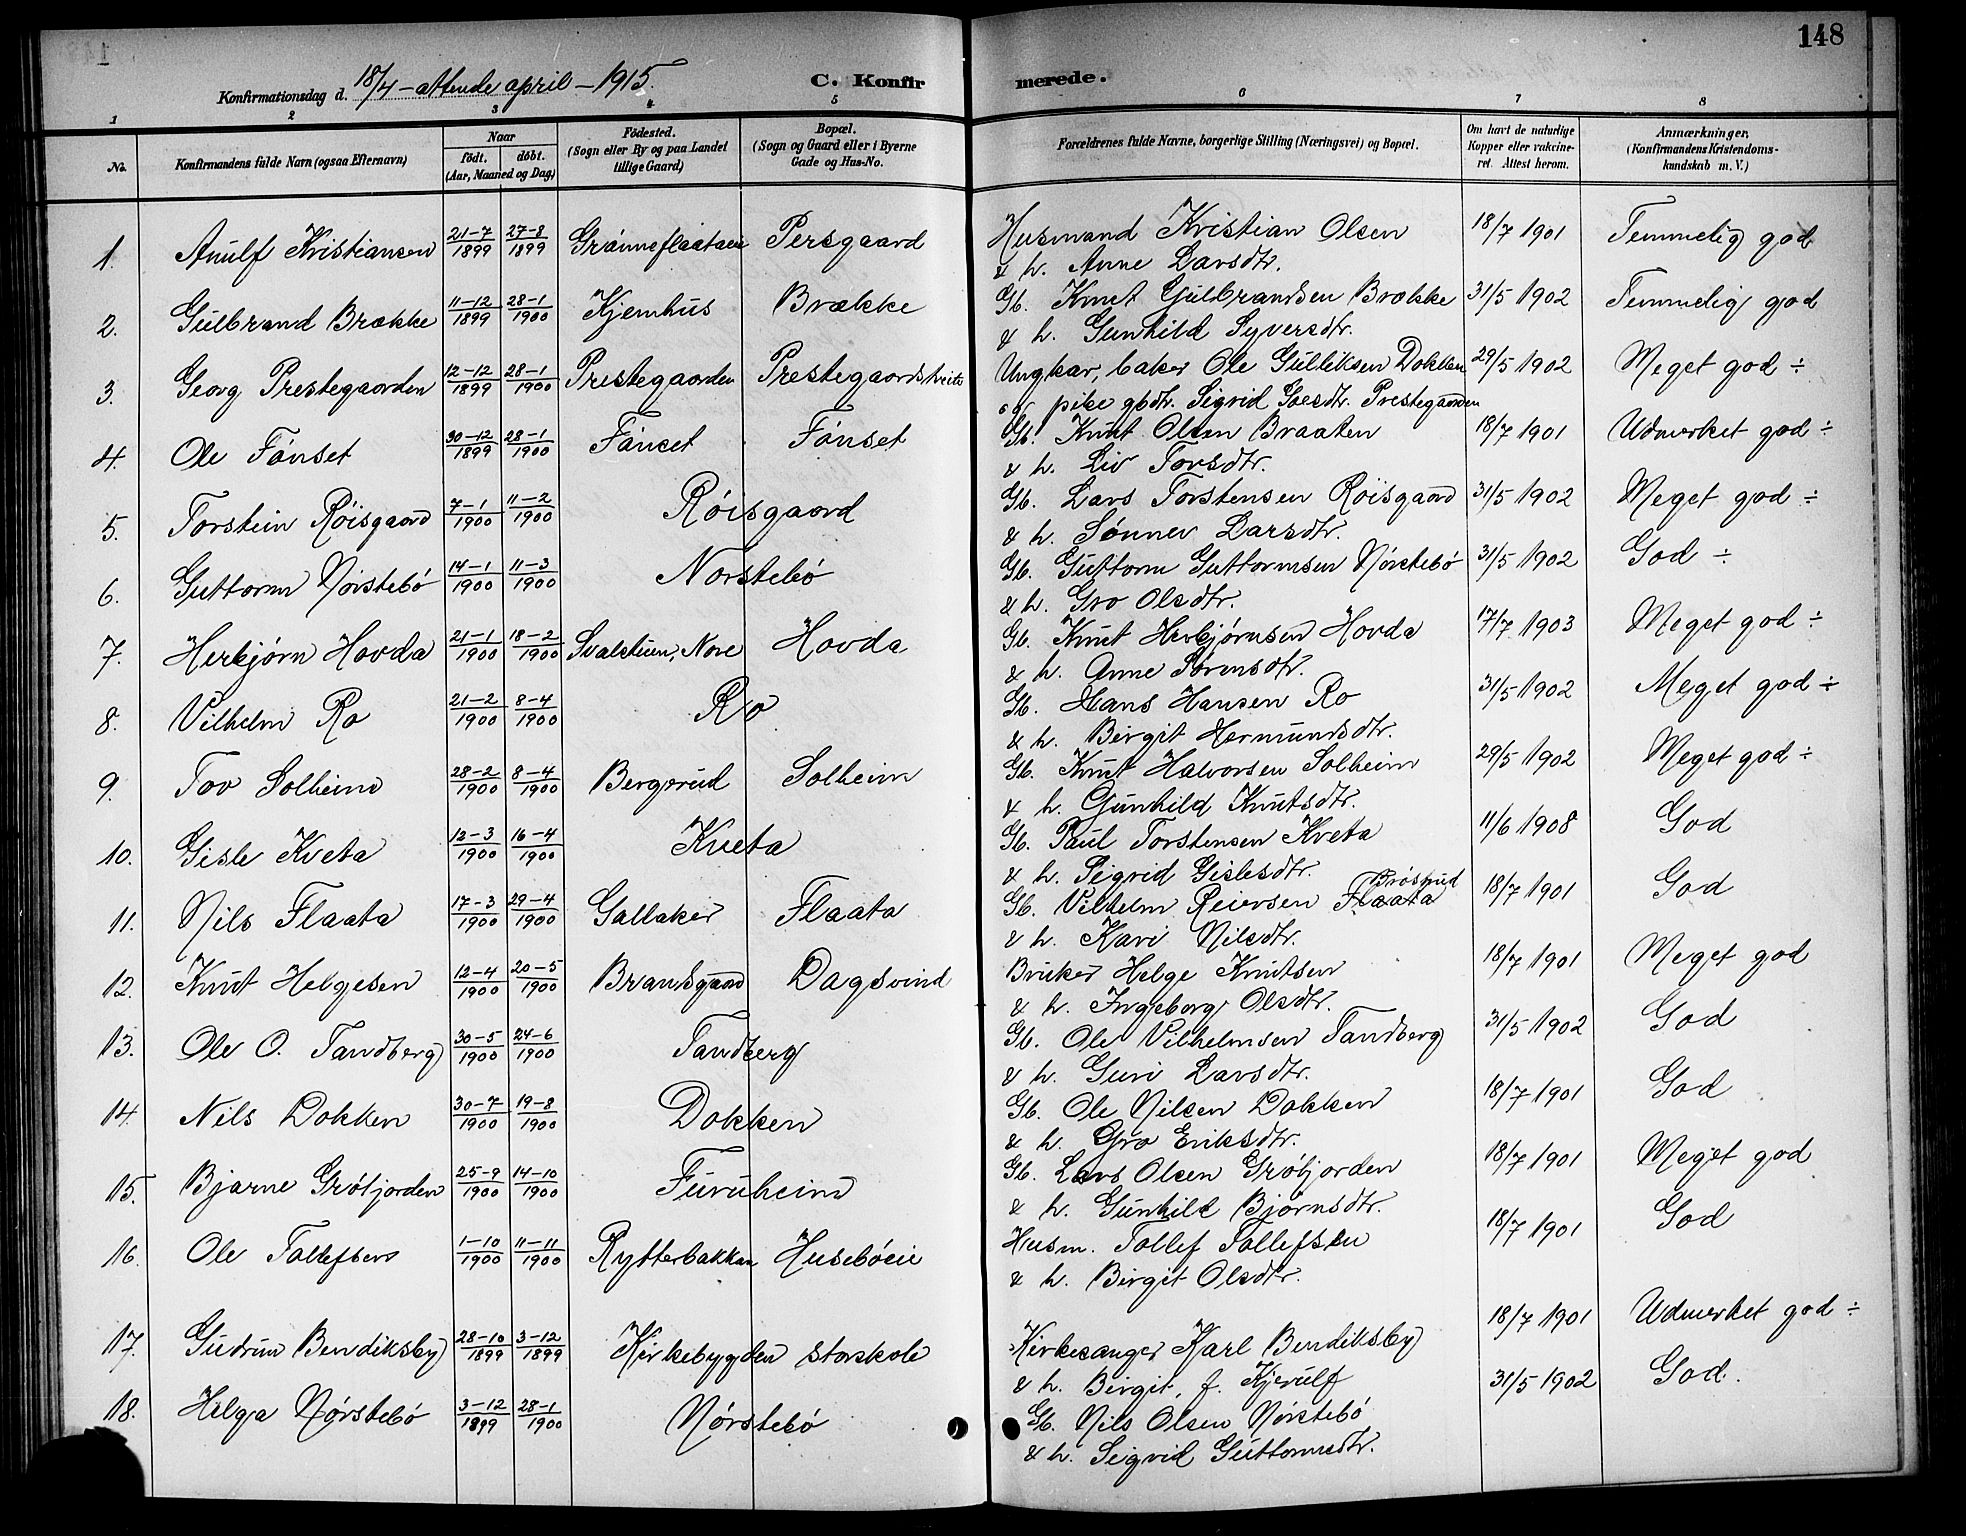 148
Konfirmationsdag d. 18/4 – attende april – 1915. C. Konfirmerede.
1 2 3 4 5 6 7 8
No. Konfirmandens fulde Navn (ogsaa Efternavn) Naar født. døbt. (Aar, Maaned og Dag) Fødested. (Sogn eller By og paa Landet tillige Gaard) Bopæl. (Sogn og Gaard eller i Byerne Gade og Hus-No. Forældrenes fulde Navne, borgerlige Stilling (Næringsvei) og Bopæl. Om havt de naturlige Kopper eller vakcineret. Attest herom. Anmærkninger. (Konfirmandens Kristendomskundskab m. V.)
1. Anulf Kristiansen 21–7 1899 27–8 1899 Persgaard Husmand Kristian Olsen 18/7 1901 Temmelig god
& h. Anne Larsdtr.
2. Gulbrand Brække 11–12 1899 28–1 1900 Kjemhus Brække Gb. Knut Gulbrandsen Brække 31/5 1902 Temmelig god
& h. Gunhild Syversdtr.
3. Georg Prestegaarden 12–12 1899 28–1 1900 Prestegaarden Ungkar, baker Ole Gulliksen Dokken 29/5 1902 Meget god ÷
og pike gbdtr. Sigrid Prestegaarden
4. Ole Fønset 30–12 1899 28–1 1900 Fønset Fønset Gb. Knut Olsen Braaten 18/7 1901 Udmerket god ÷
& h. Liv Torsdtr.
5. Torstein Røisgaard 7–1 1900 11–2 1900 Røisgaard Gb. Lars Torstensen Røisgaard 31/5 1902 Meget god ÷
& h. Sønnev Larsdtr.
6. Guttorm Nørstebø 14–1 1900 11–3 1900 Nørstebø Gb. Guttorm Guttormsen Nørstebø 31/5 1902 God ÷
& h. Gro Olsdtr.
7. Herbjørn Hovda 21–1 1900 18–2 1900 Nore Hovda Gb. Knut Herbjørnsen Hovda 17/7 1903 Meget god ÷
& h. Anne Sørensdtr.
8. Vilhelm Ro 21–2 1900 8–4 1900 Ro Gb. Hans Hansen Ro 31/5 1902 Meget god ÷
& h. Birgit Hermundsdtr.
9. Tov Solheim 28–2 1900 8–4 1900 Bergerud Solheim Gb. Knut Halvorsen Solheim 29/5 1902 Meget god ÷
& h. Gunhild Knutsdtr.
10. Gisle Kveta 12–3 1900 16–4 1900 Kveta Gb. Paul Torstensen Kveta 11/6 1908 God
& h. Sigrid Gislesdtr.
11. Nils Flaata 17–3 1900 29–4 1900 Gallaker Flaata Gb. Vilhelm Reiersen Flaata Brøstrud 18/7 1901 God
& h. Kari Nilsdtr.
12. Knut Helgesen 12–4 1900 20–5 1900 Brandsgaard Dagsvind Bruker Helge Knutsen 18/7 1901 Meget god
& h. Ingeborg Olsdtr.
13. Ole O. Tandberg 30–5 1900 24–6 1900 Tandberg Gb. Ole Vilhelmsen Tandberg 31/5 1902 God
& h. Guri Larsdtr.
14. Nils Dokken 30–7 1900 19–8 1900 Dokken Gb. Ole Nilsen Dokken 18/7 1901 God
& h. Gro Eriksdtr.
15. Bjarne Grøtjorden 25–9 1900 14–10 1900 Furuheim Gb. Lars Olsen Grøtjorden 18/7 1901 Meget god
& h. Gunhild Bjørnsdtr.
16. Ole Tollefsen 1–10 1900 11–11 1900 Rytterbakken Husebøeie Husm. Tollef Tollefsen 18/7 1901 God
& h. Birgit Olsdtr.
17. Gudrun Bendiksby 28–10 1899 3–12 1899 Kirkebygden storskole Kirkesanger Karl Bendiksby 18/7 1901 Udmerket god ÷
& h. Birgit, f. Kjerulf
18. Helga Nørstebø 3–12 1899 28–1 1900 Nørstebø Gb. Nils Olsen Nørstebø 31/5 1902 God.
& h. Sigrid Guttormsdtr.